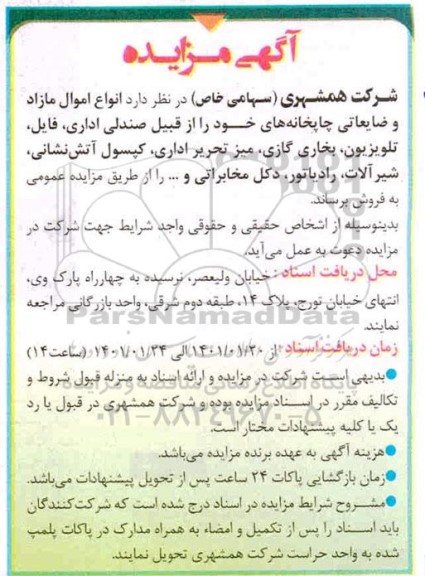 آگهی مزایده
شرکت همشهری (سهامی خاص) در نظر دارد انواع اموال مازاد
و ضایعاتی چاپخانه‌های خود را از قبیل صندلی اداری، فایل،
تلویزیون، بخاری گازی، میز تحریر اداری، کپسول آتش‌نشانی،
شیرآلات، رادیاتور، دکل مخابراتی و ... را از طریق مزایده عمومی
به فروش برساند.
بدینوسیله از اشخاص حقیقی و حقوقی واجد شرایط جهت شرکت در
مزایده دعوت به عمل می‌آید.
محل دریافت اسناد: خیابان ولیعصر، نرسیده به چهارراه پارک وی،
انتهای خیابان تورج، پلاک ۱۴، طبقه دوم شرقی، واحد بازرگانی مراجعه
نمایند.
ParsNamadData
زمان دریافت اسناد: از ۱۴۰۱/۰۱/۲۰ الی ۱۴۰۱/۰۱/۲۴ (ساعت ۱۴)
● بدیهی است شرکت در مزایده و ارائه اسناد به منزله قبول شروط و
تکالیف مقرر در اسناد مزایده بوده و شرکت همشهری در قبول یا رد
یک یا کلیه پیشنهادات مختار است.
۰۲۱-۸۸۳۴۹۶۷۰-۵
● هزینه آگهی به عهده برنده مزایده می‌باشد.
● زمان بازگشایی پاکات ۲۴ ساعت پس از تحویل پیشنهادات می‌باشد.
● مشروح شرایط مزایده در اسناد درج شده است که شرکت‌کنندگان
باید اسناد را پس از تکمیل و امضاء به همراه مدارک در پاکات پلمپ
شده به واحد حراست شرکت همشهری تحویل نمایند.